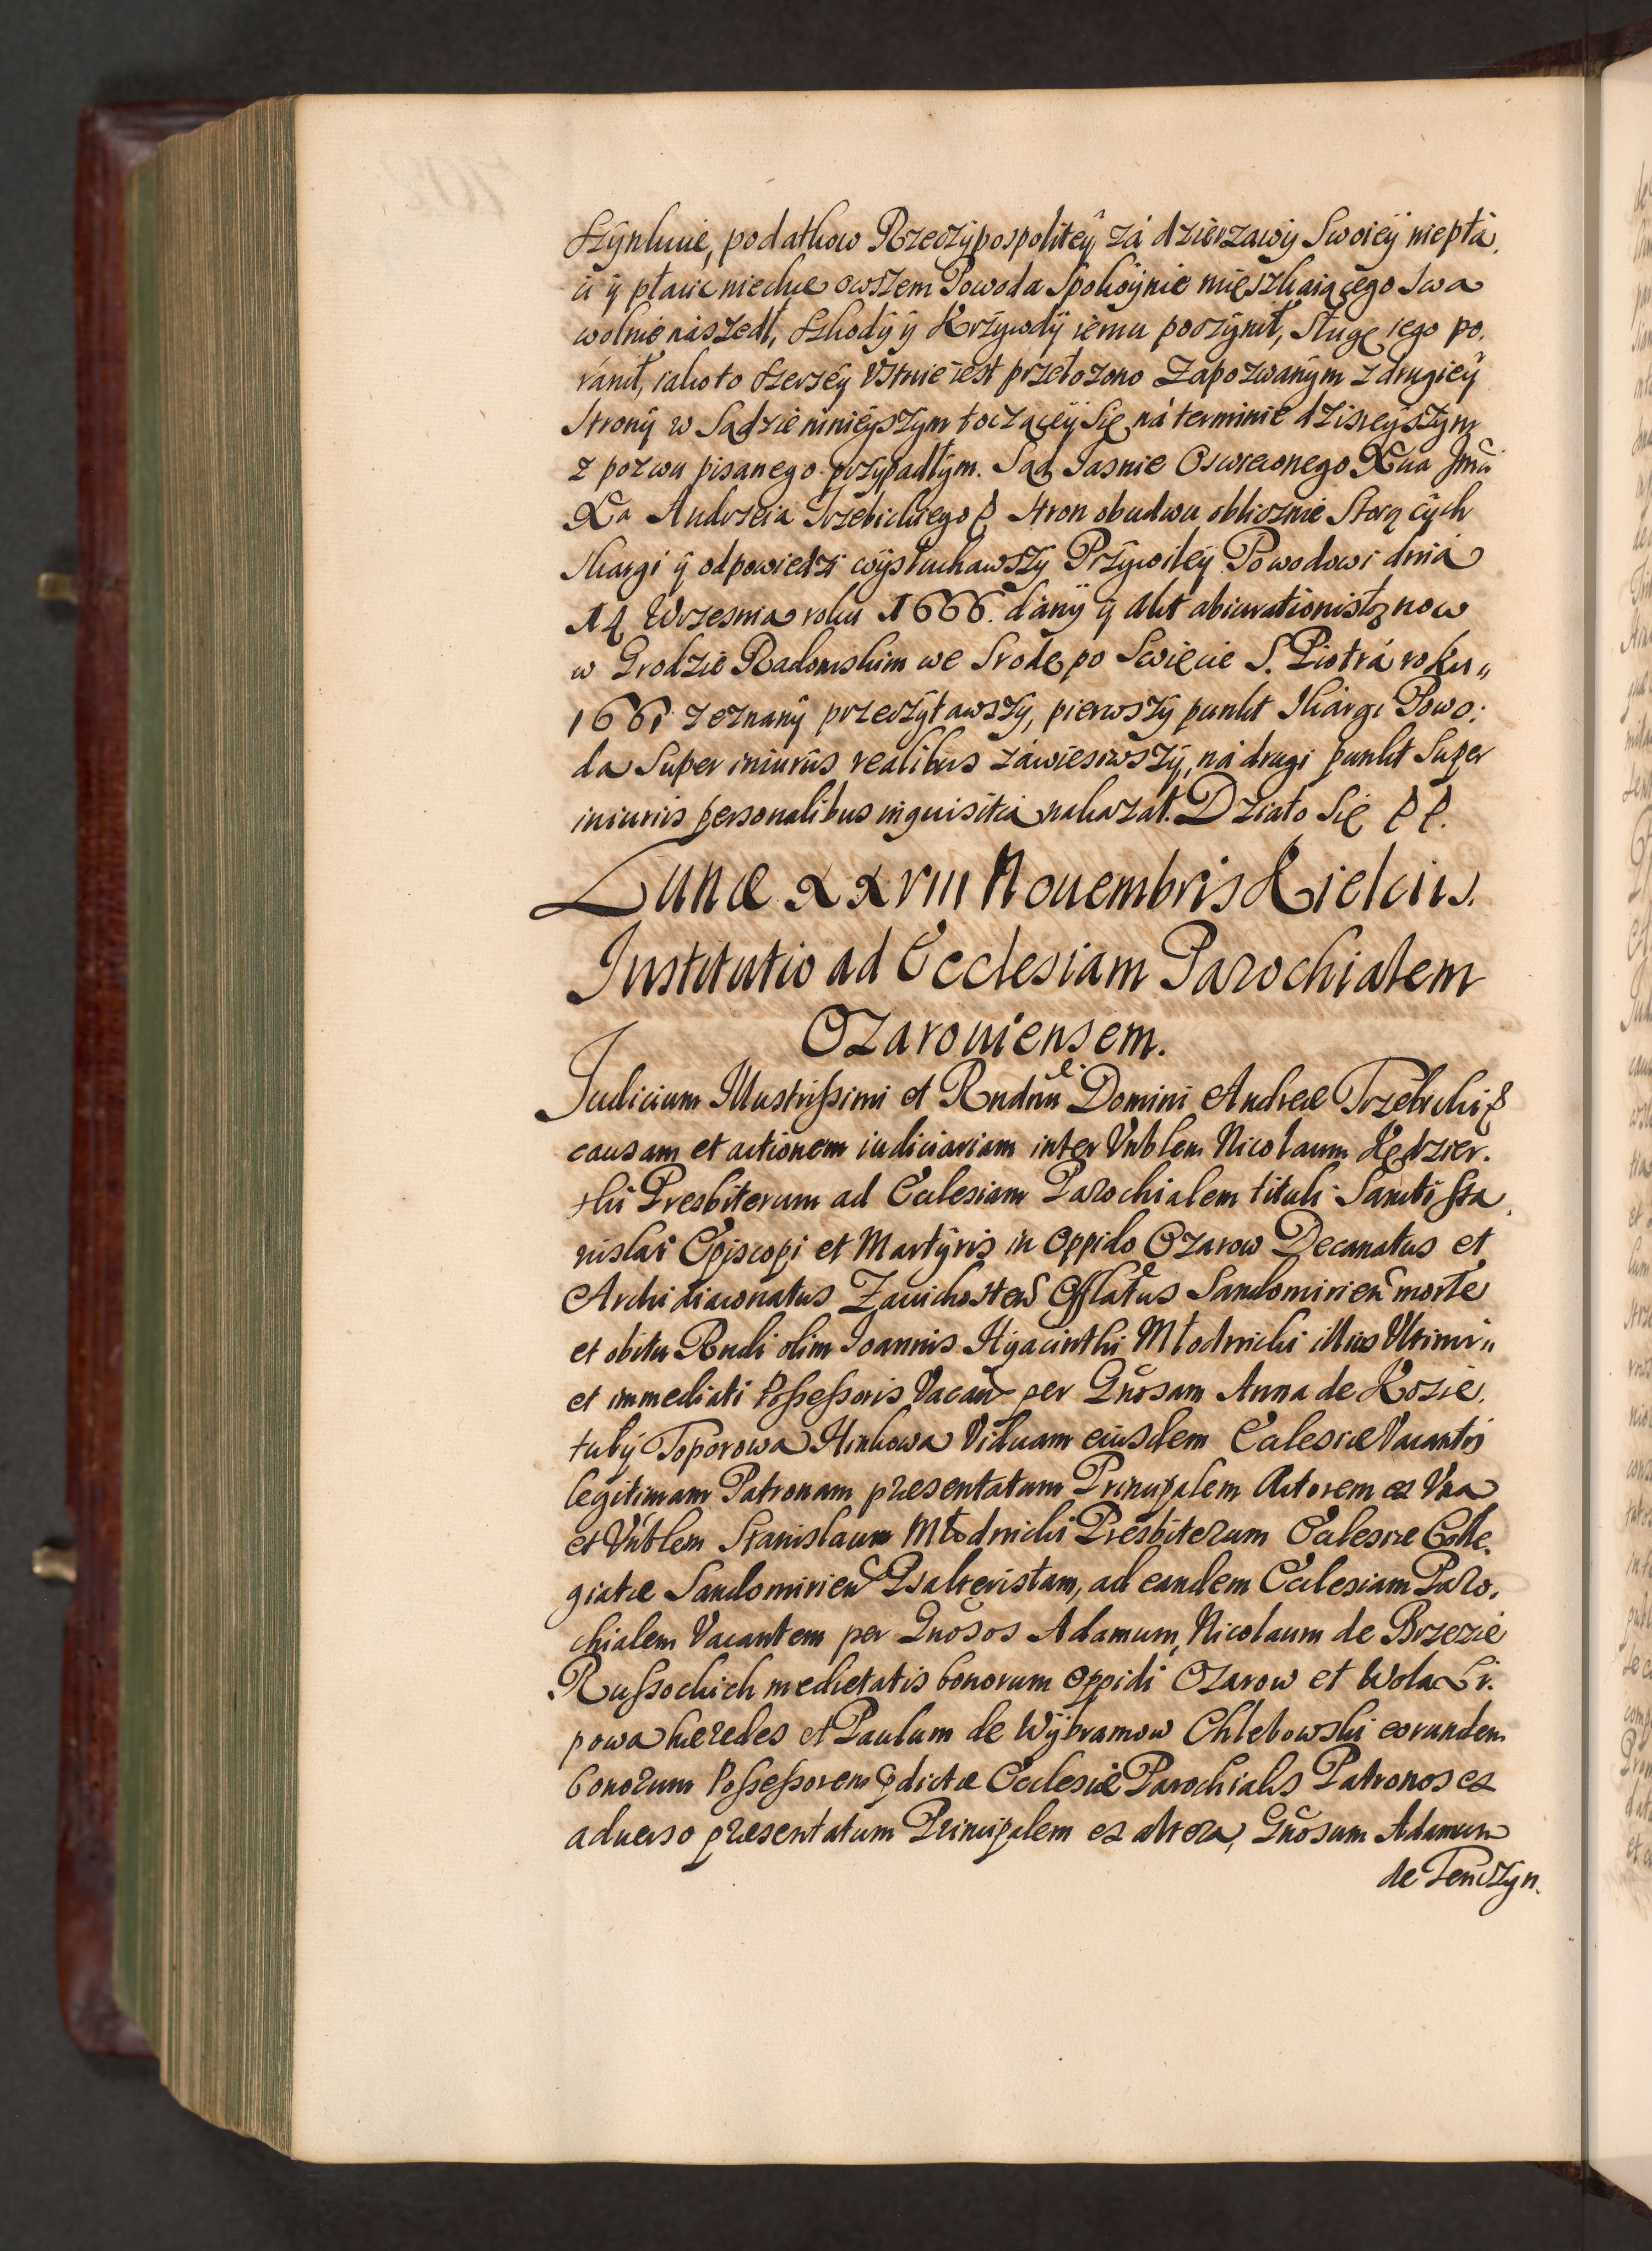 szynkuie, podatkow Rzeczypospolitey zá dzierzawy Swoiey niepłá,
ci y płacic niechce owszem Powoda Spokoynie mięszkaiącego Swa
wolnie nászedł, szkody y Krzywdy iemu poczynił, Sługę iego po,
ránił, iako to szerzey Vstnie iest przełozono Zapozwanym z drugiey
Strony w Sądzie ninieyszym toczącey Się ná terminie dzisieyszym
z pozwu pisanego przypadłym. Sąd Jasnie Oswieconego Xcia Jmci
Xa Andrzeia Trzebickiego Stron obudwu oblicznie Storących
Skargi y odpowiedzi wysłuchawszy Przywiley Powodowi dniá
14 Wrzesnia roku 1666. dány y Akt abiurationis
w Grodzie Radomskim we Srodę po Swięcie S. Piotrá roku,,
1661 zeznany przeczytawszy, pierwszy punkt Skárgi Powo:
da Super iniuriis realibus záwiesiwszy, ná drugi punkt Super
iniuriis personalibus inquisitią nakazał. Działo Się
Lunæ xxviii Nouembris Kielciis.
Institutio ad Ecclesiam Parochialem
Ozarouiensem.
Judicium Illustrissimi et Rndmi Domini Andreæ Trzebicki
causam et actionem iudiciariam inter Vnblem Nicolaum Kędzier.
ski Presbiterum ad Ecclesiam Parochialem tituli Sancti Sta,
nislai Episcopi et Martyris in Oppido Ozarow Decanatus et
Archidiaconatus Zauichosten Offlatus Sandomirien morte
et obitu Rndi olim Joannis Hyacinthi Młodnicki illius Vltimi,,
et immediati Possessoris Vacan per Gnosam Anna de Kozie,
tuły Toporowa Hinkowa Viduam eiusdem Ecclesiæ Vacantis
legitimam Patronam præsentatum Principalem Actorem ex Vna
et Vnblem Stanislaum Młodnicki Presbiterum Ecclesiæ Colle,
giatæ Sandomirien Psalteristam, ad eandem Ecclesiam Paro,
chialem Vacantem per Gnosos Adamum, Nicolaum de Brzezie
Russockich medietatis bonorum Oppidi Ozarow et Wola Li.
powa hæredes et Paulum de Wybramow Chlebowski eorundem
bonorum Possessorem pdictæ Ecclesiæ Parochialis Patronos ex
aduerso præsentatum Principalem ex altera, Gnosum Adamum
de Tenczyn.